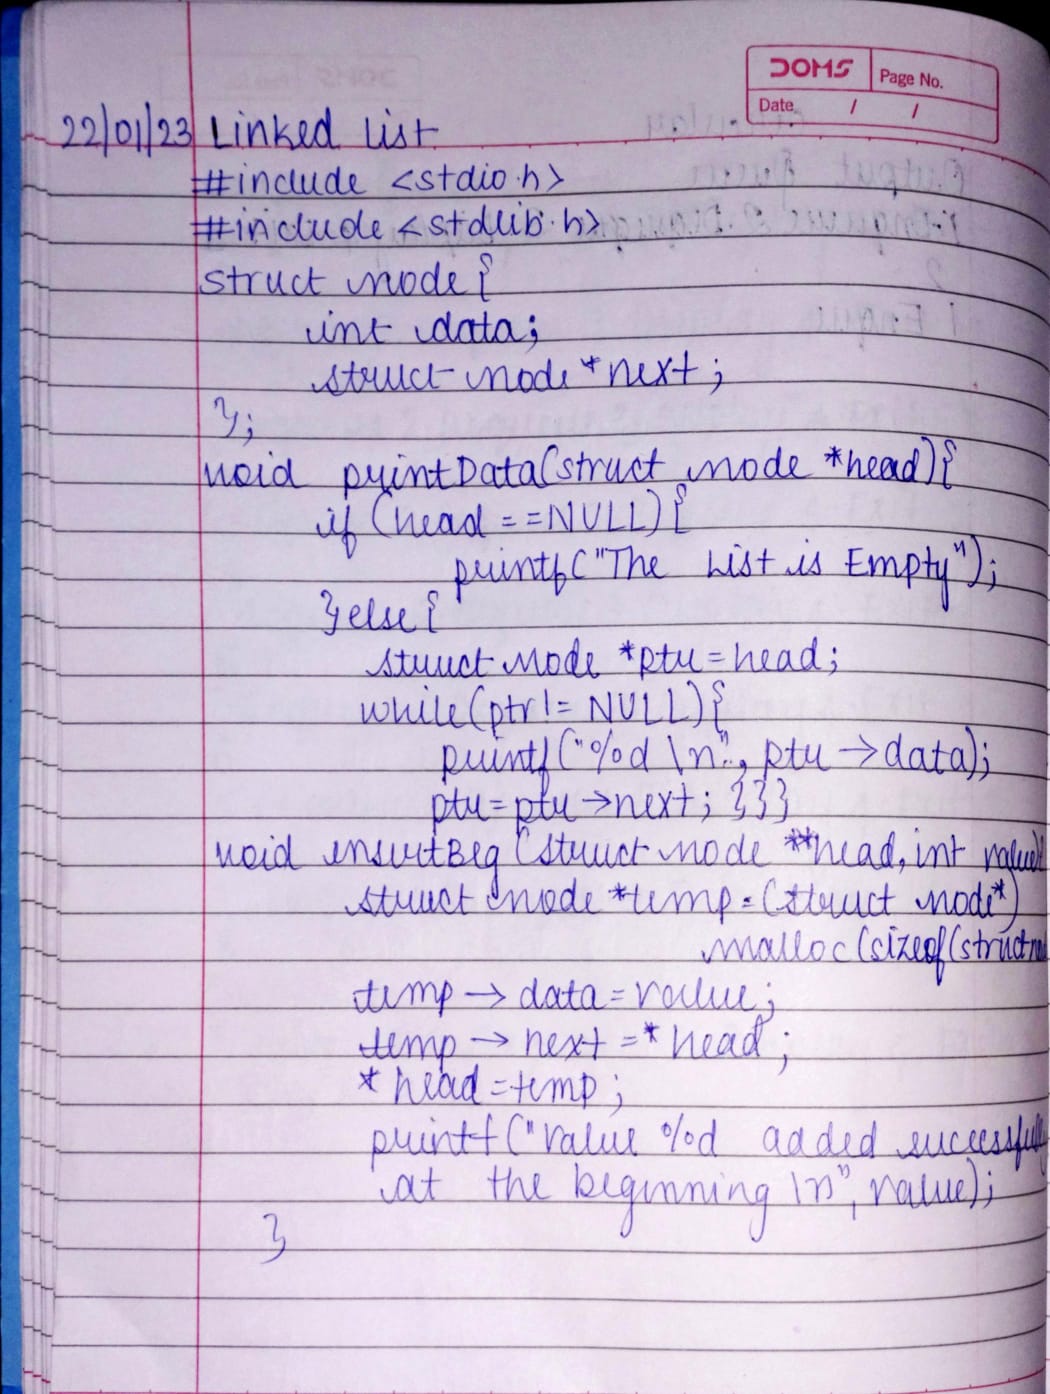 DOMS
Page No.
Date / /
22/01/23 Linked List
#include <stdio.h>
#include <stdlib.h>
struct node {
int data;
struct node *next;
};
void printData(struct node *head){
if (head ==NULL) {
printf("The List is Empty");
}else{
struct node *ptr=head;
while(ptr!= NULL){
printf("%d \n", ptr->data);
ptr=ptr->next; }}}
void insertBeg (struct node **head, int value){
struct node *temp=(struct node*)
malloc(sizeof(struct
temp -> data=value;
temp -> next =*head;
*head=temp;
printf("Value %d added successfully
at the beginning \n", value);
}